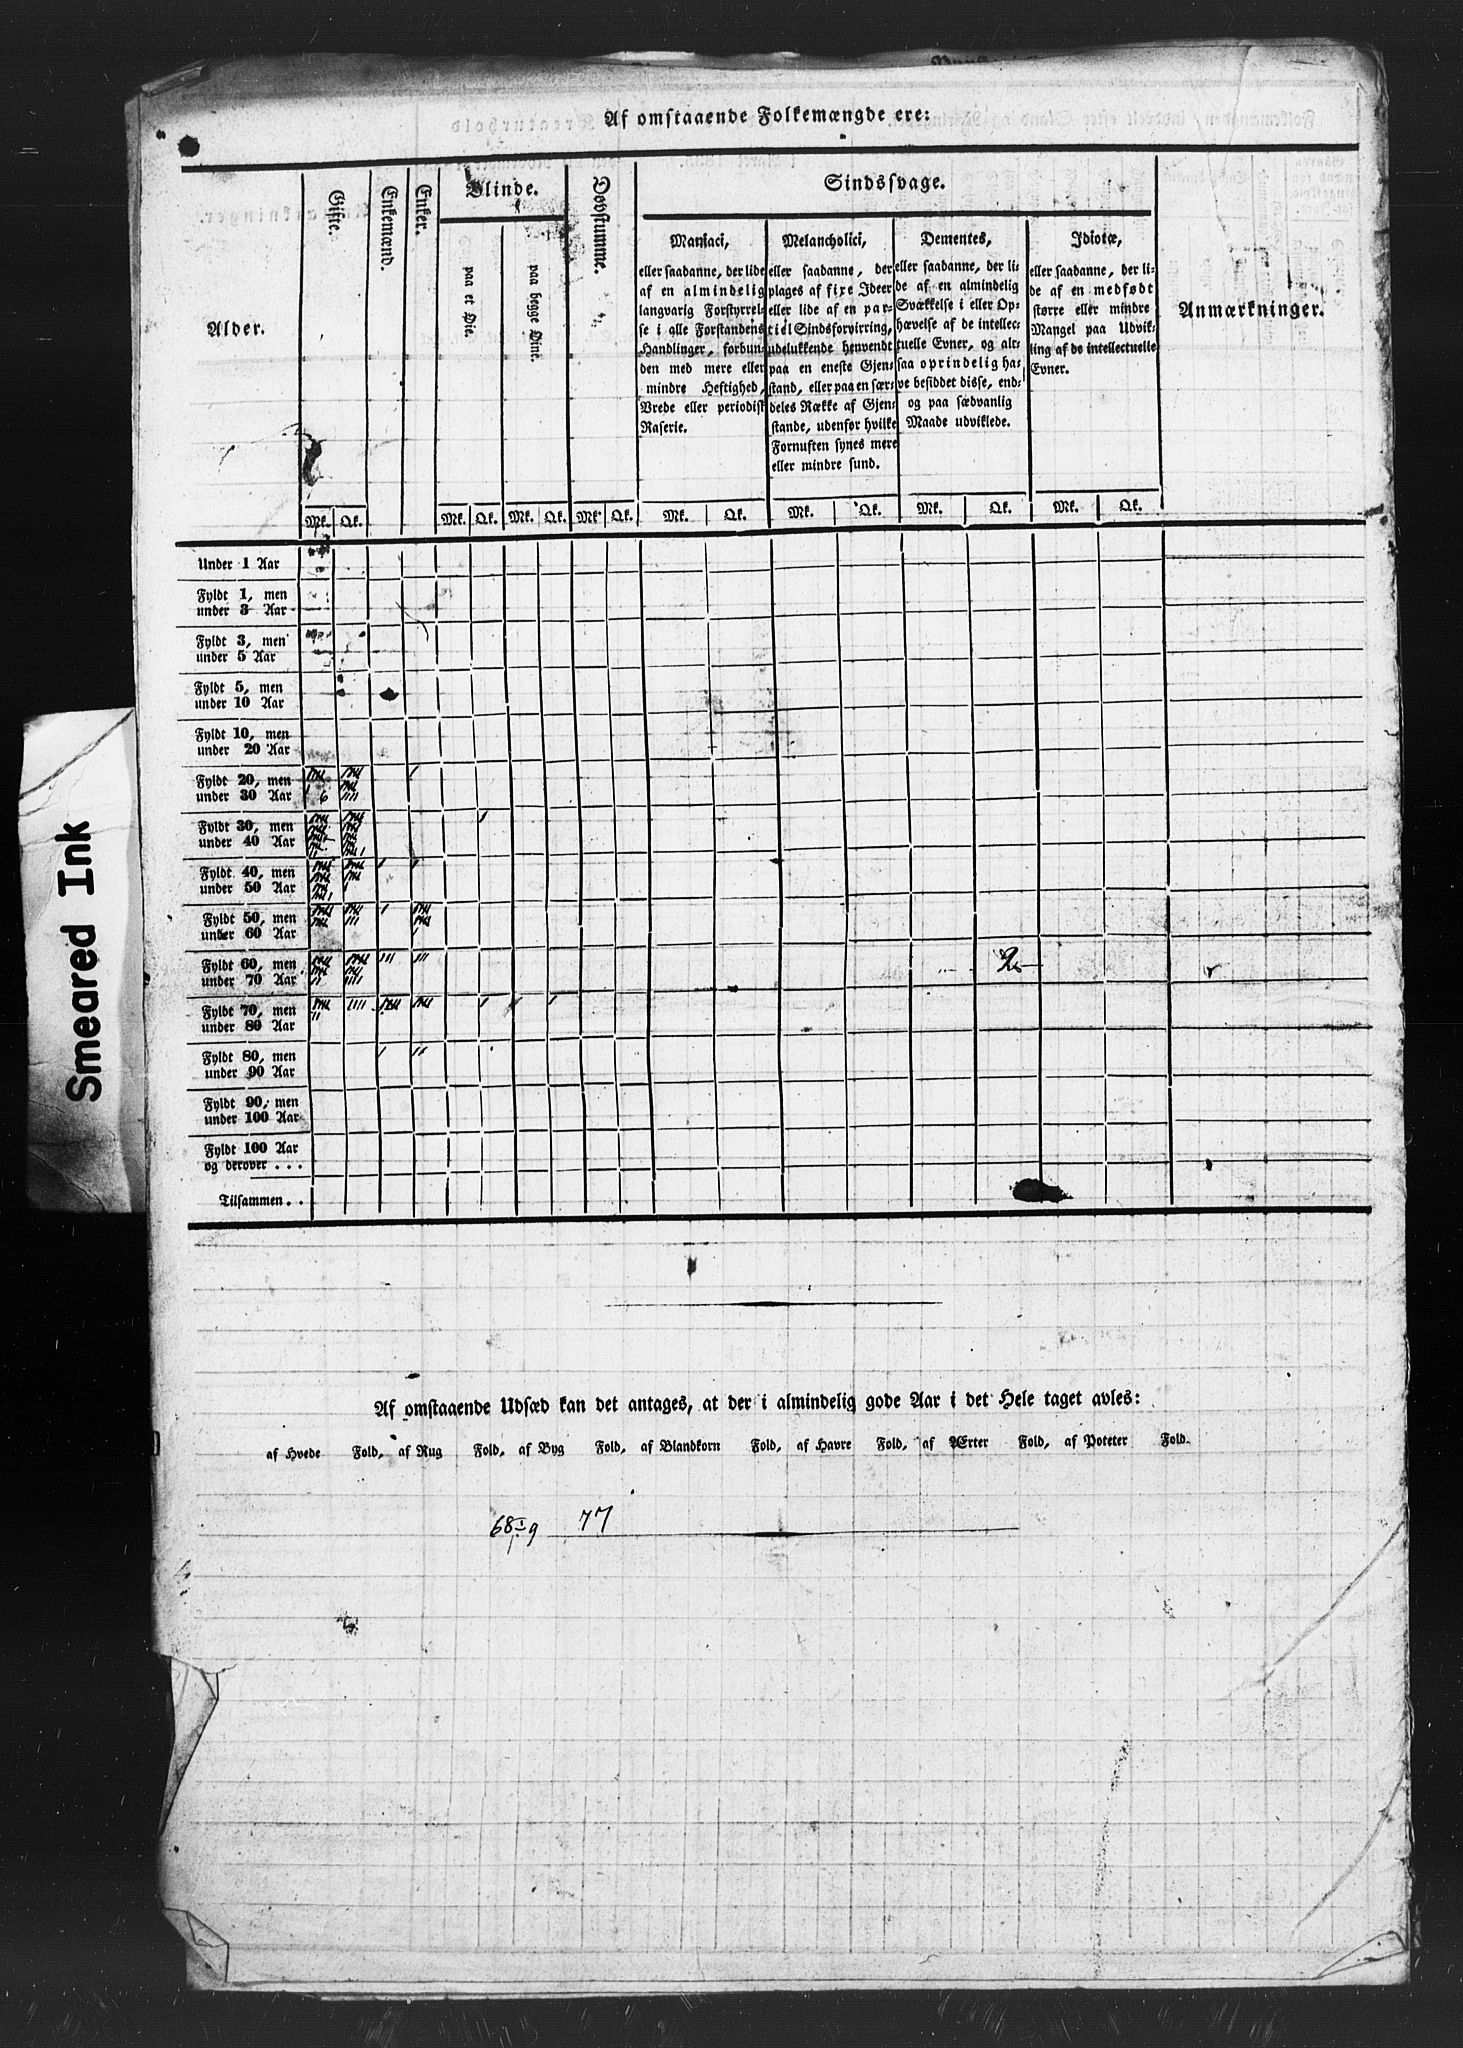 Af omstaaende Folkemængde ere:
Alder.
Gifte.
Enkemænd.
Enker.
Blinde.
paa et Øie.
paa begge Øine.
Døvstumme.
Sindssvage.
Maniaci,
eller saadanne, der lide
af en almindelig
langvarig Forstyrrel-
se i alle Forstandens
Handlinger, forbun-
den med mere eller
mindre Heftighed,
Vrede eller periodisk
Raserie.
Melancholici,
eller saadanne, der
plages af fixe Ideer
eller lide af en par-
tiel Sindsforvirring,
udelukkende henvendt
paa en eneste Gjen-
stand, eller paa en sær-
deles Række af Gjen-
stande, udenfor hvilke
Fornuften synes mere
eller mindre sund.
Dementes,
eller saadanne, der li-
de af en almindelig
Svækkelse i eller Op-
hævelse af de intellec-
tuelle Evner, og alt-
saa oprindelig ha-
ve besiddet disse, end-
og paa sædvanlig
Maade udviklede.
Idiotæ,
eller saadanne, der li-
de af en medfødt
større eller mindre
Mangel paa Udvik-
ling af de intellectuelle
Evner.
Anmærkninger.
Mk. Qk. Mk. Qk. Mk. Qk. Mk. Qk. Mk. Qk. Mk. Qk. Mk. Qk. Mk. Qk.
Under 1 Aar
Fyldt 1, men
under 3 Aar
Fyldt 3, men
under 5 Aar
Fyldt 5, men
under 10 Aar
Fyldt 10, men
under 20 Aar
Fyldt 20, men
under 30 Aar 6
Fyldt 30, men
under 40 Aar
Fyldt 40, men
under 50 Aar
Fyldt 50, men
under 60 Aar
Fyldt 60, men 2
under 70 Aar
Fyldt 70, men
under 80 Aar
Fyldt 80, men
under 90 Aar
Fyldt 90, men
under 100 Aar
Fyldt 100 Aar
og derover . . .
Tilsammen . .
Smeared Ink
Af omstaaende Udsæd kan det antages, at der i almindelig gode Aar i det Hele taget avles:
af Hvede Fold, af Rug Fold, af Byg Fold, af Blandkorn Fold, af Havre Fold, af Ærter Fold, af Poteter Fold.
77